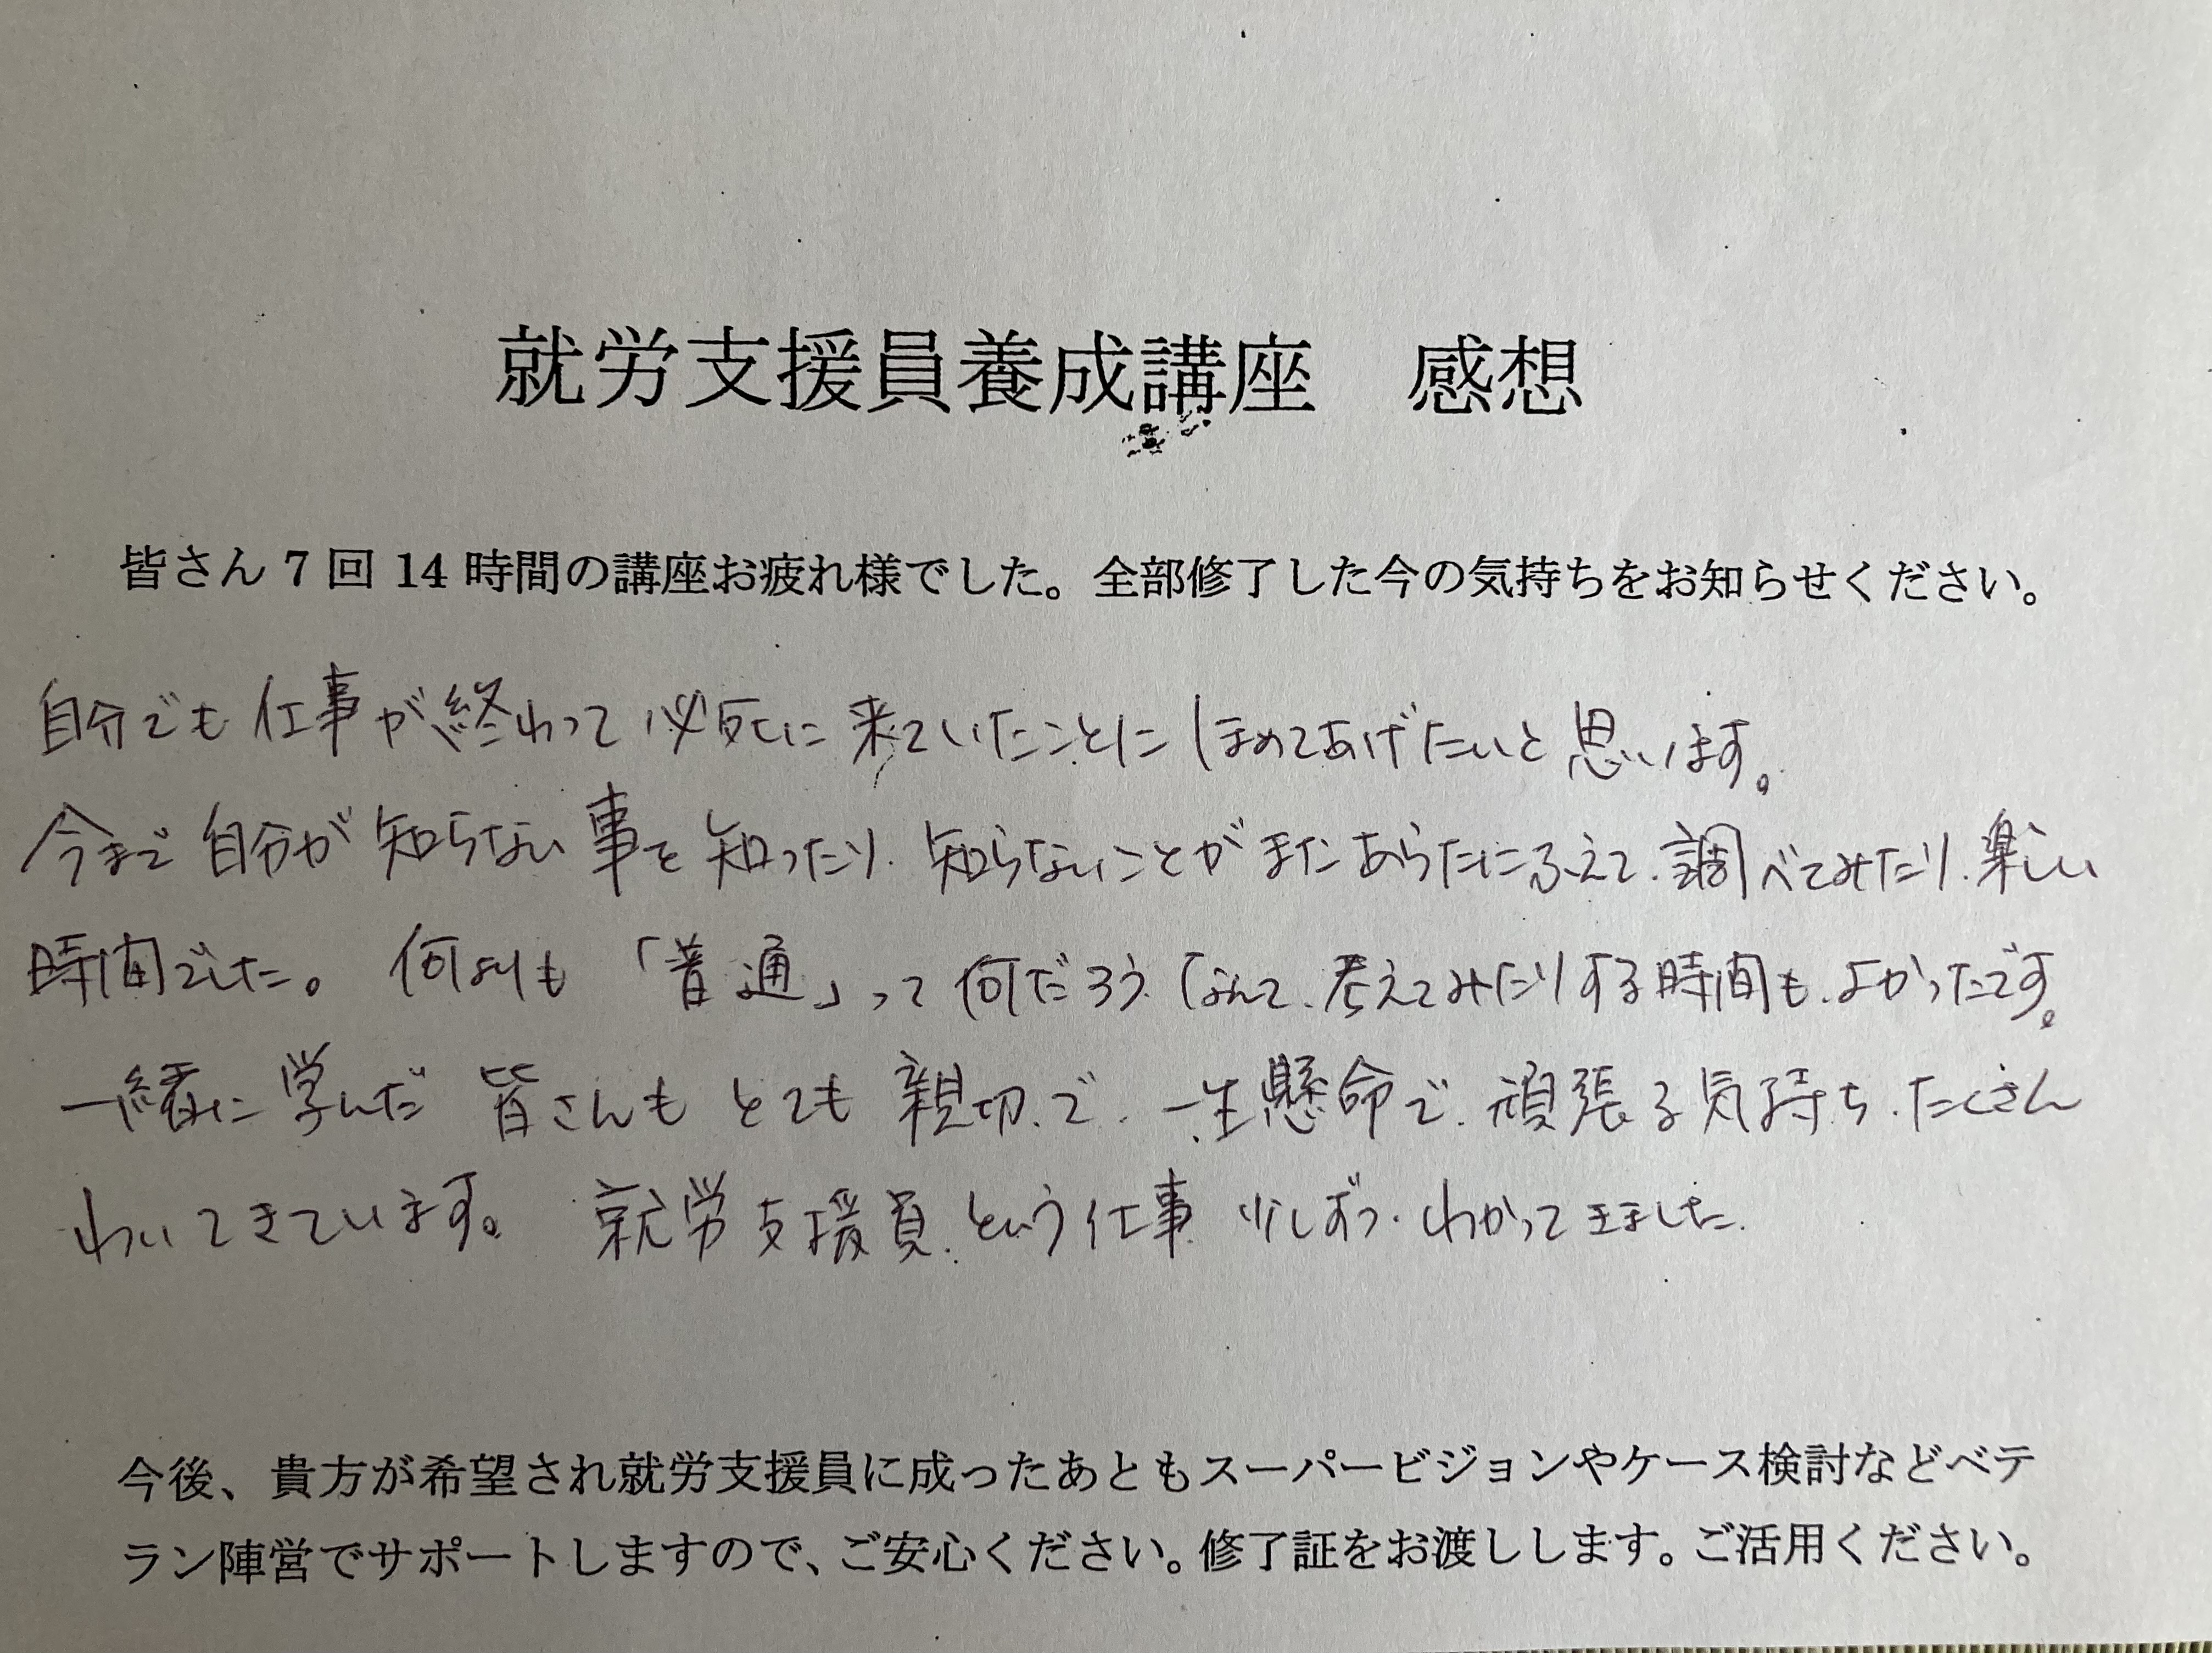 就労支援員養成講座　感想
皆さん7回14時間の講座お疲れ様でした。全部修了した今の気持ちをお知らせください。
自分でも仕事が終わって必死に来ていたことにほめてあげたいと思います。
今まで自分が知らない事を知ったり、知らないことがまたあらたにふえて、調べてみたり、楽しい
時間でした。何よりも「普通」って何だろう、なんて、考えてみたりする時間も、よかったです。
一緒に学んだ皆さんもとても親切で、一生懸命で、頑張る気持ち、たくさん
わいてきています。就労支援員、という仕事、少しずつ、わかってきました。
今後、貴方が希望され就労支援員に成ったあともスーパービジョンやケース検討などベテ
ラン陣営でサポートしますので、ご安心ください。修了証をお渡しします。ご活用ください。